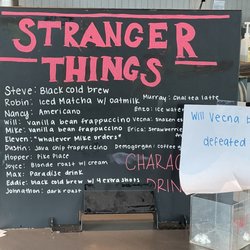 STRANGER
THINGS
Steve: Black cold brew
Robin: iced Matcha w/ oatmilk
Murray: Chai tea latte
Nancy: Americano
Enzo: Ice water
Will: Vanilla bean frappuccino
Vecna: shaken
Mike: Vanilla bean frappuccino
Erica: Strawberries
Eleven: "whatever Mike orders"
Dustin: Java chip frappuccino
Demogorgon: coffee
Hopper: Pike Place
Joyce: Blonde roast w/ cream
Max: Paradise drink
Eddie: black cold brew w/ 4 extra shots
Johnathan: dark roast
CHARAC
DRIN
Will Vecna b
defeated